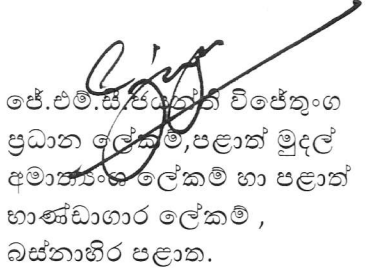 ජේ.එම්.සී.ජයන්ති විජේතුංග
ප්‍රධාන ලේකම්,පළාත් මුදල්
අමාත්‍යංශ ලේකම් හා පළාත්
භාණ්ඩාගාර ලේකම් ,
බස්නාහිර පළාත.